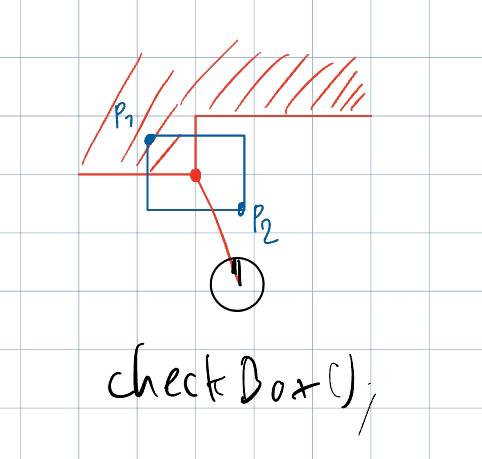 P1
P2
checkBox();